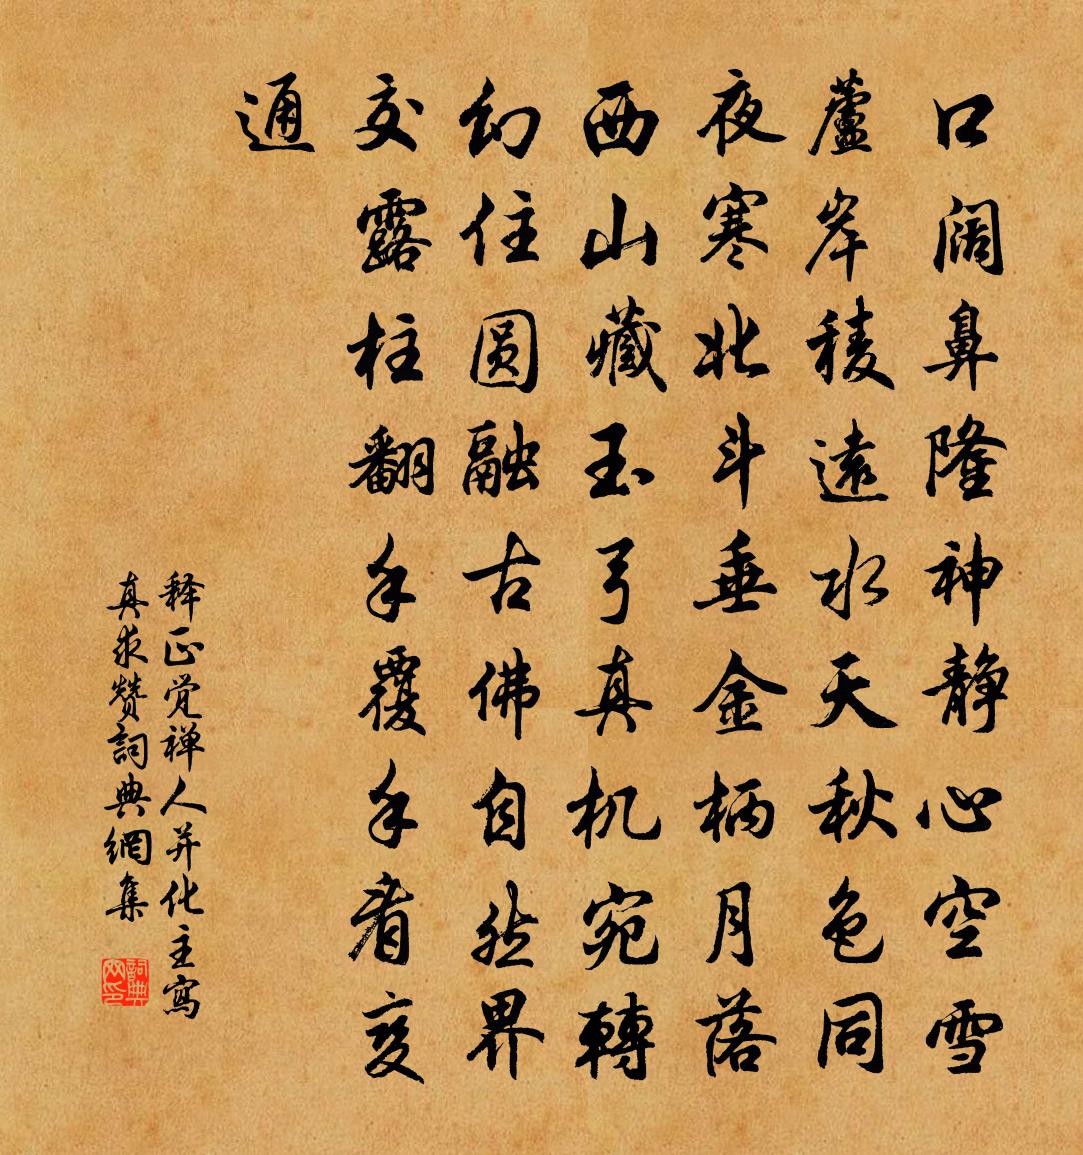 口阔鼻隆神静心空雪
蘆岸稜遠水天秋色同
夜寒北斗垂金柄月落
西山藏玉弓真机宛轉
幻住圆融古佛自然界
交露柱翻手覆手看变
通
释正觉禅人并化主寫
真求赞詞典網集
詞典網印